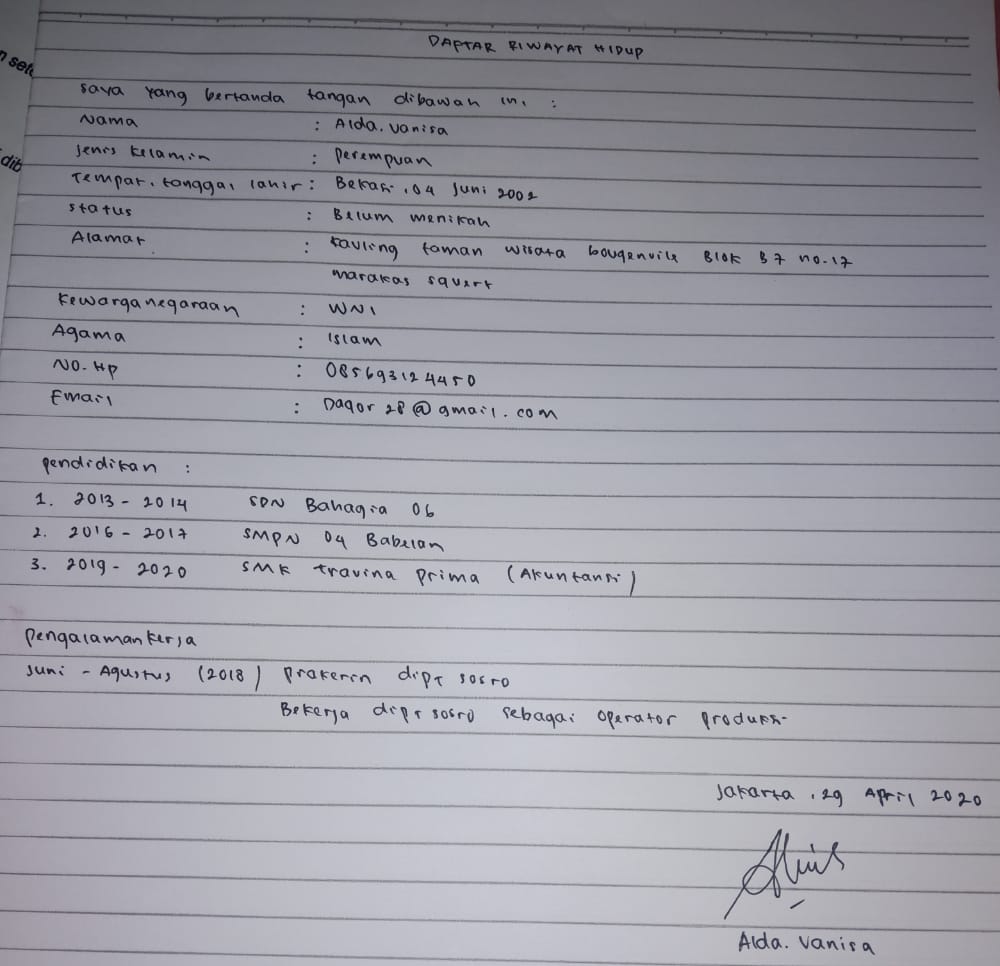 DAFTAR RIWAYAT HIDUP
n set
saya yang bertanda tangan dibawah ini :
Nama : Alda. vanisa
dib
Jenis kelamin : perempuan
Tempat, tanggal lahir : Bekasi, 04 Juni 2002
status : Belum menikah
Alamat : kavling taman wisata bougenvile Blok B7 no.17
marakas squert
Kewarganegaraan : WNI
Agama : Islam
NO. Hp : 085693124450
Email : Daqor28@gmail.com
pendidikan :
1. 2013 - 2014 SDN Bahagia 06
2. 2016 - 2017 SMPN 04 Babelan
3. 2019 - 2020 SMK travina prima (Akuntansi)
pengalaman kerja
Juni - Agustus (2018) prakerin dipt sosro
Bekerja dipt sosro sebagai operator produksi
Jakarta, 29 April 2020
Alda. vanisa